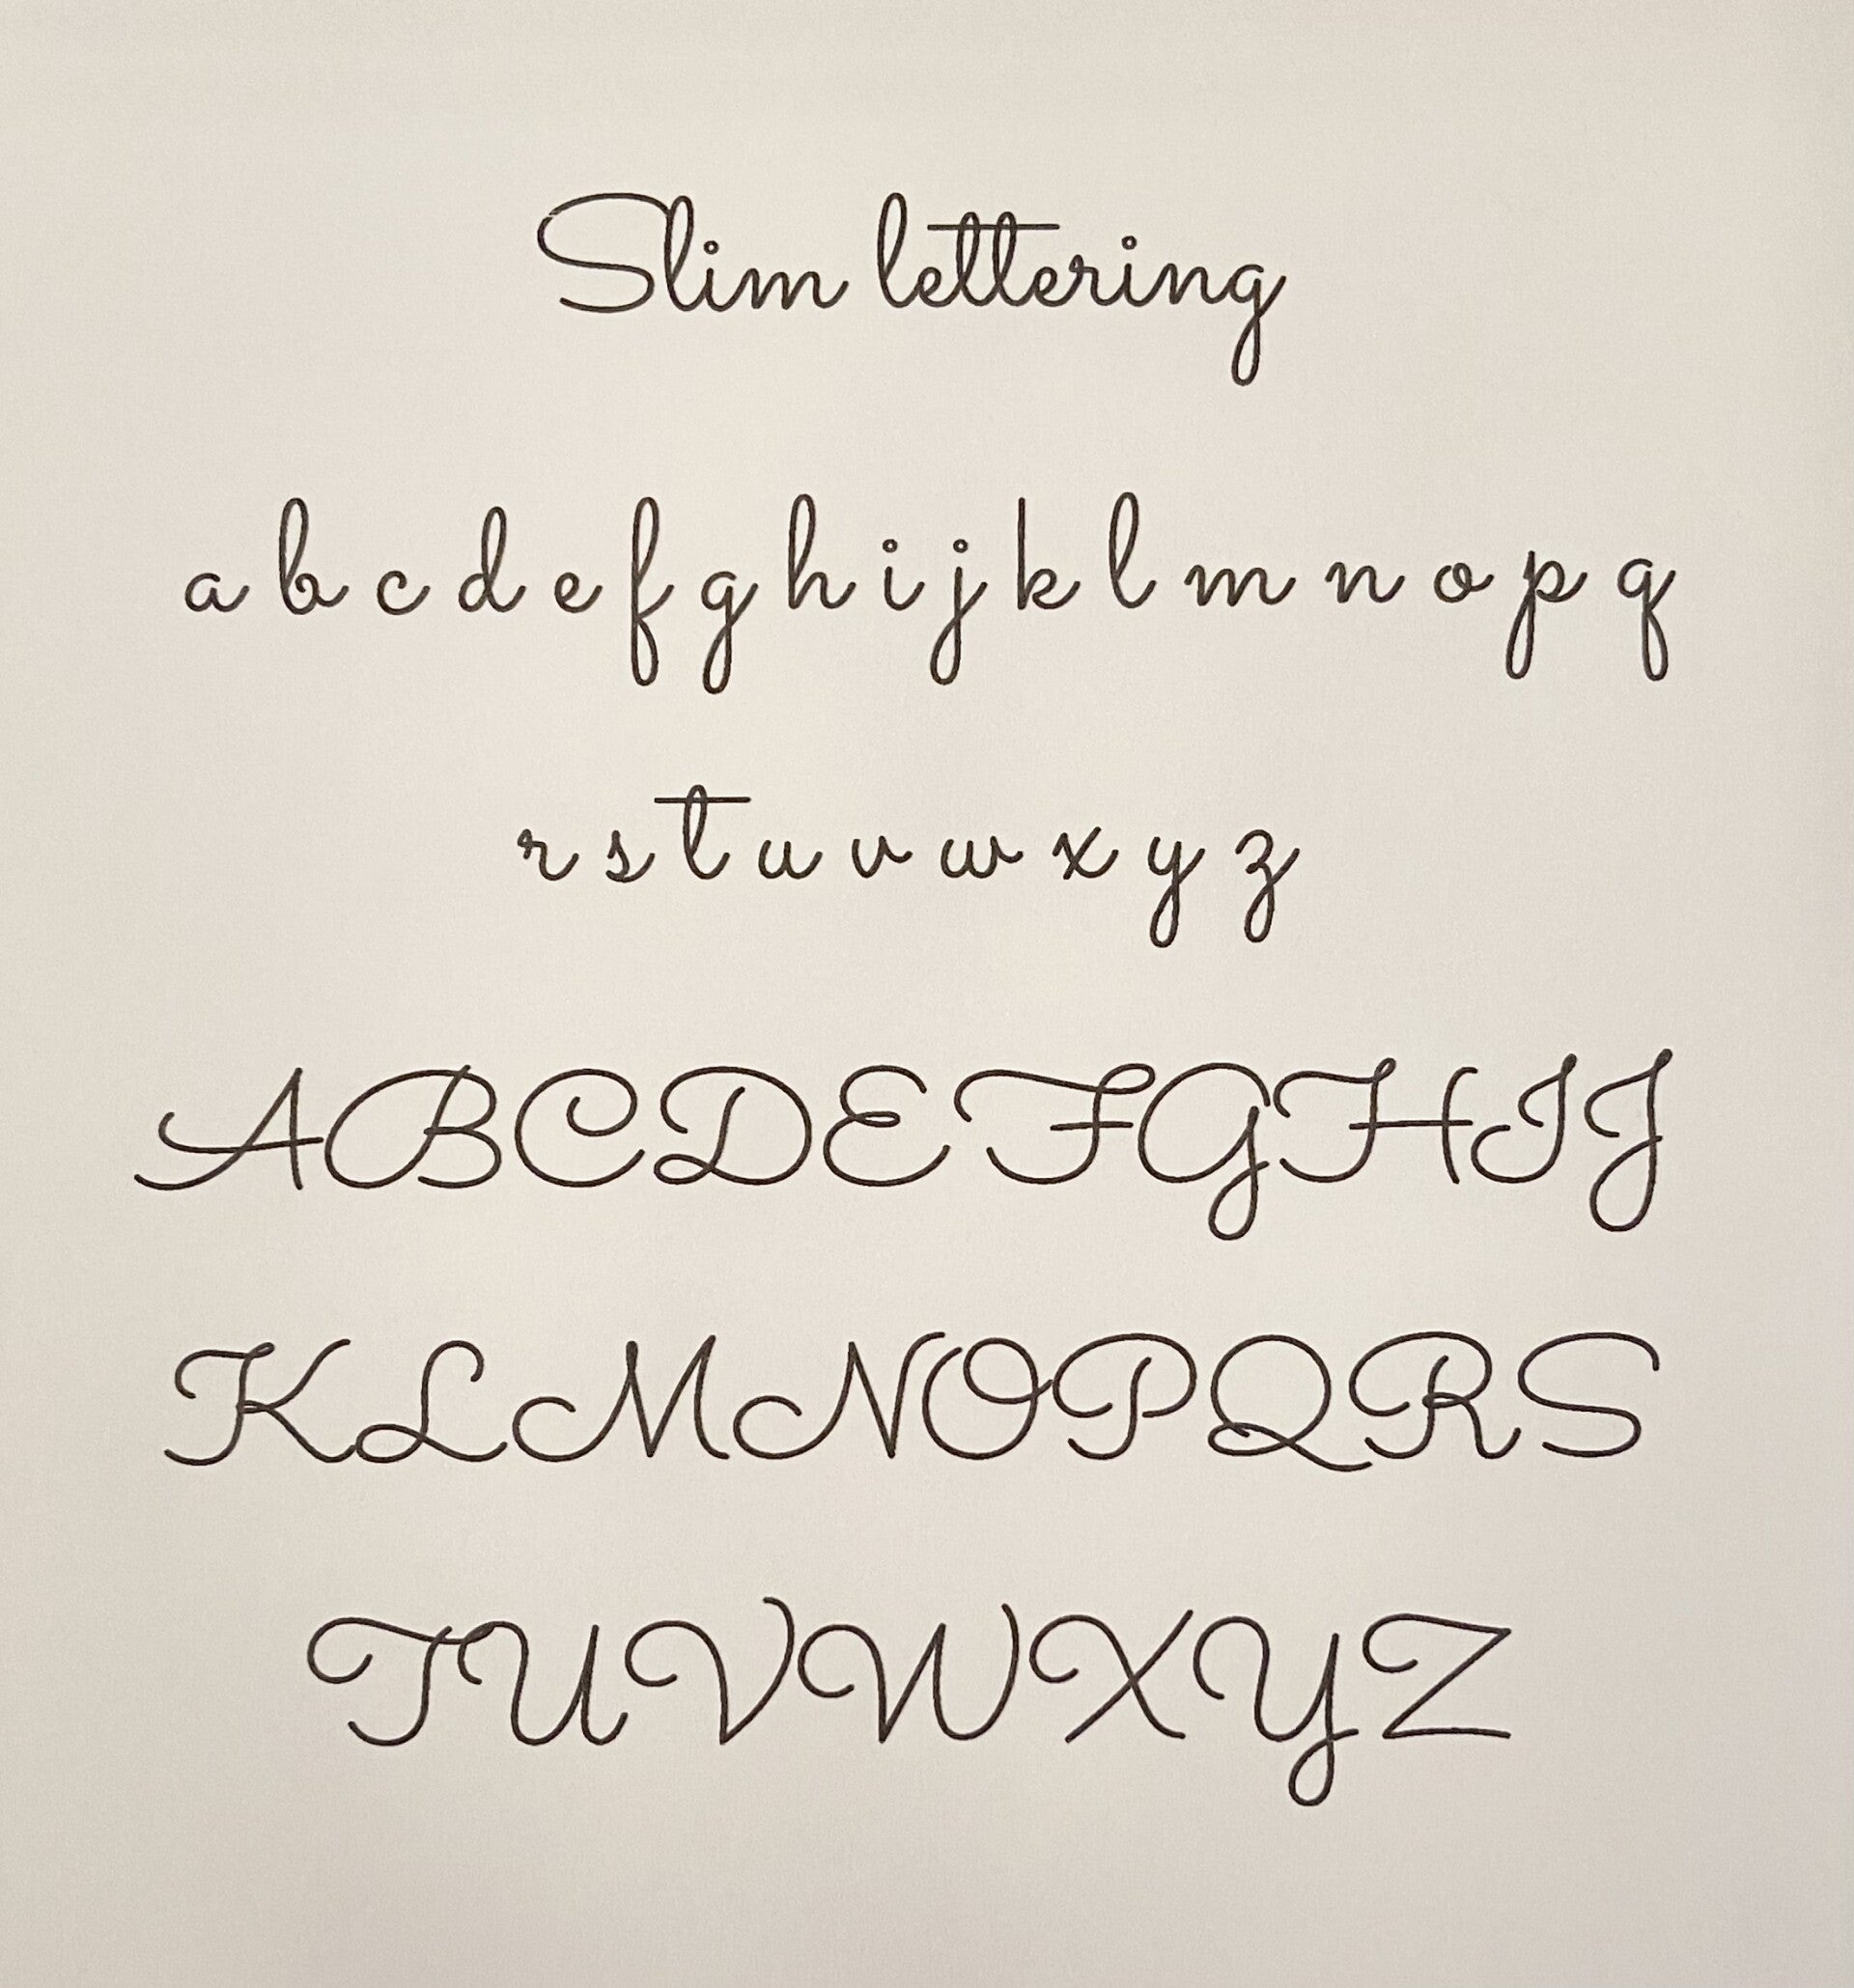 Slim lettering
a b c d e f g h i j k l m n o p q
r s t u v w x y z
A B C D E F G H I J
K L M N O P Q R S
T U V W X Y Z